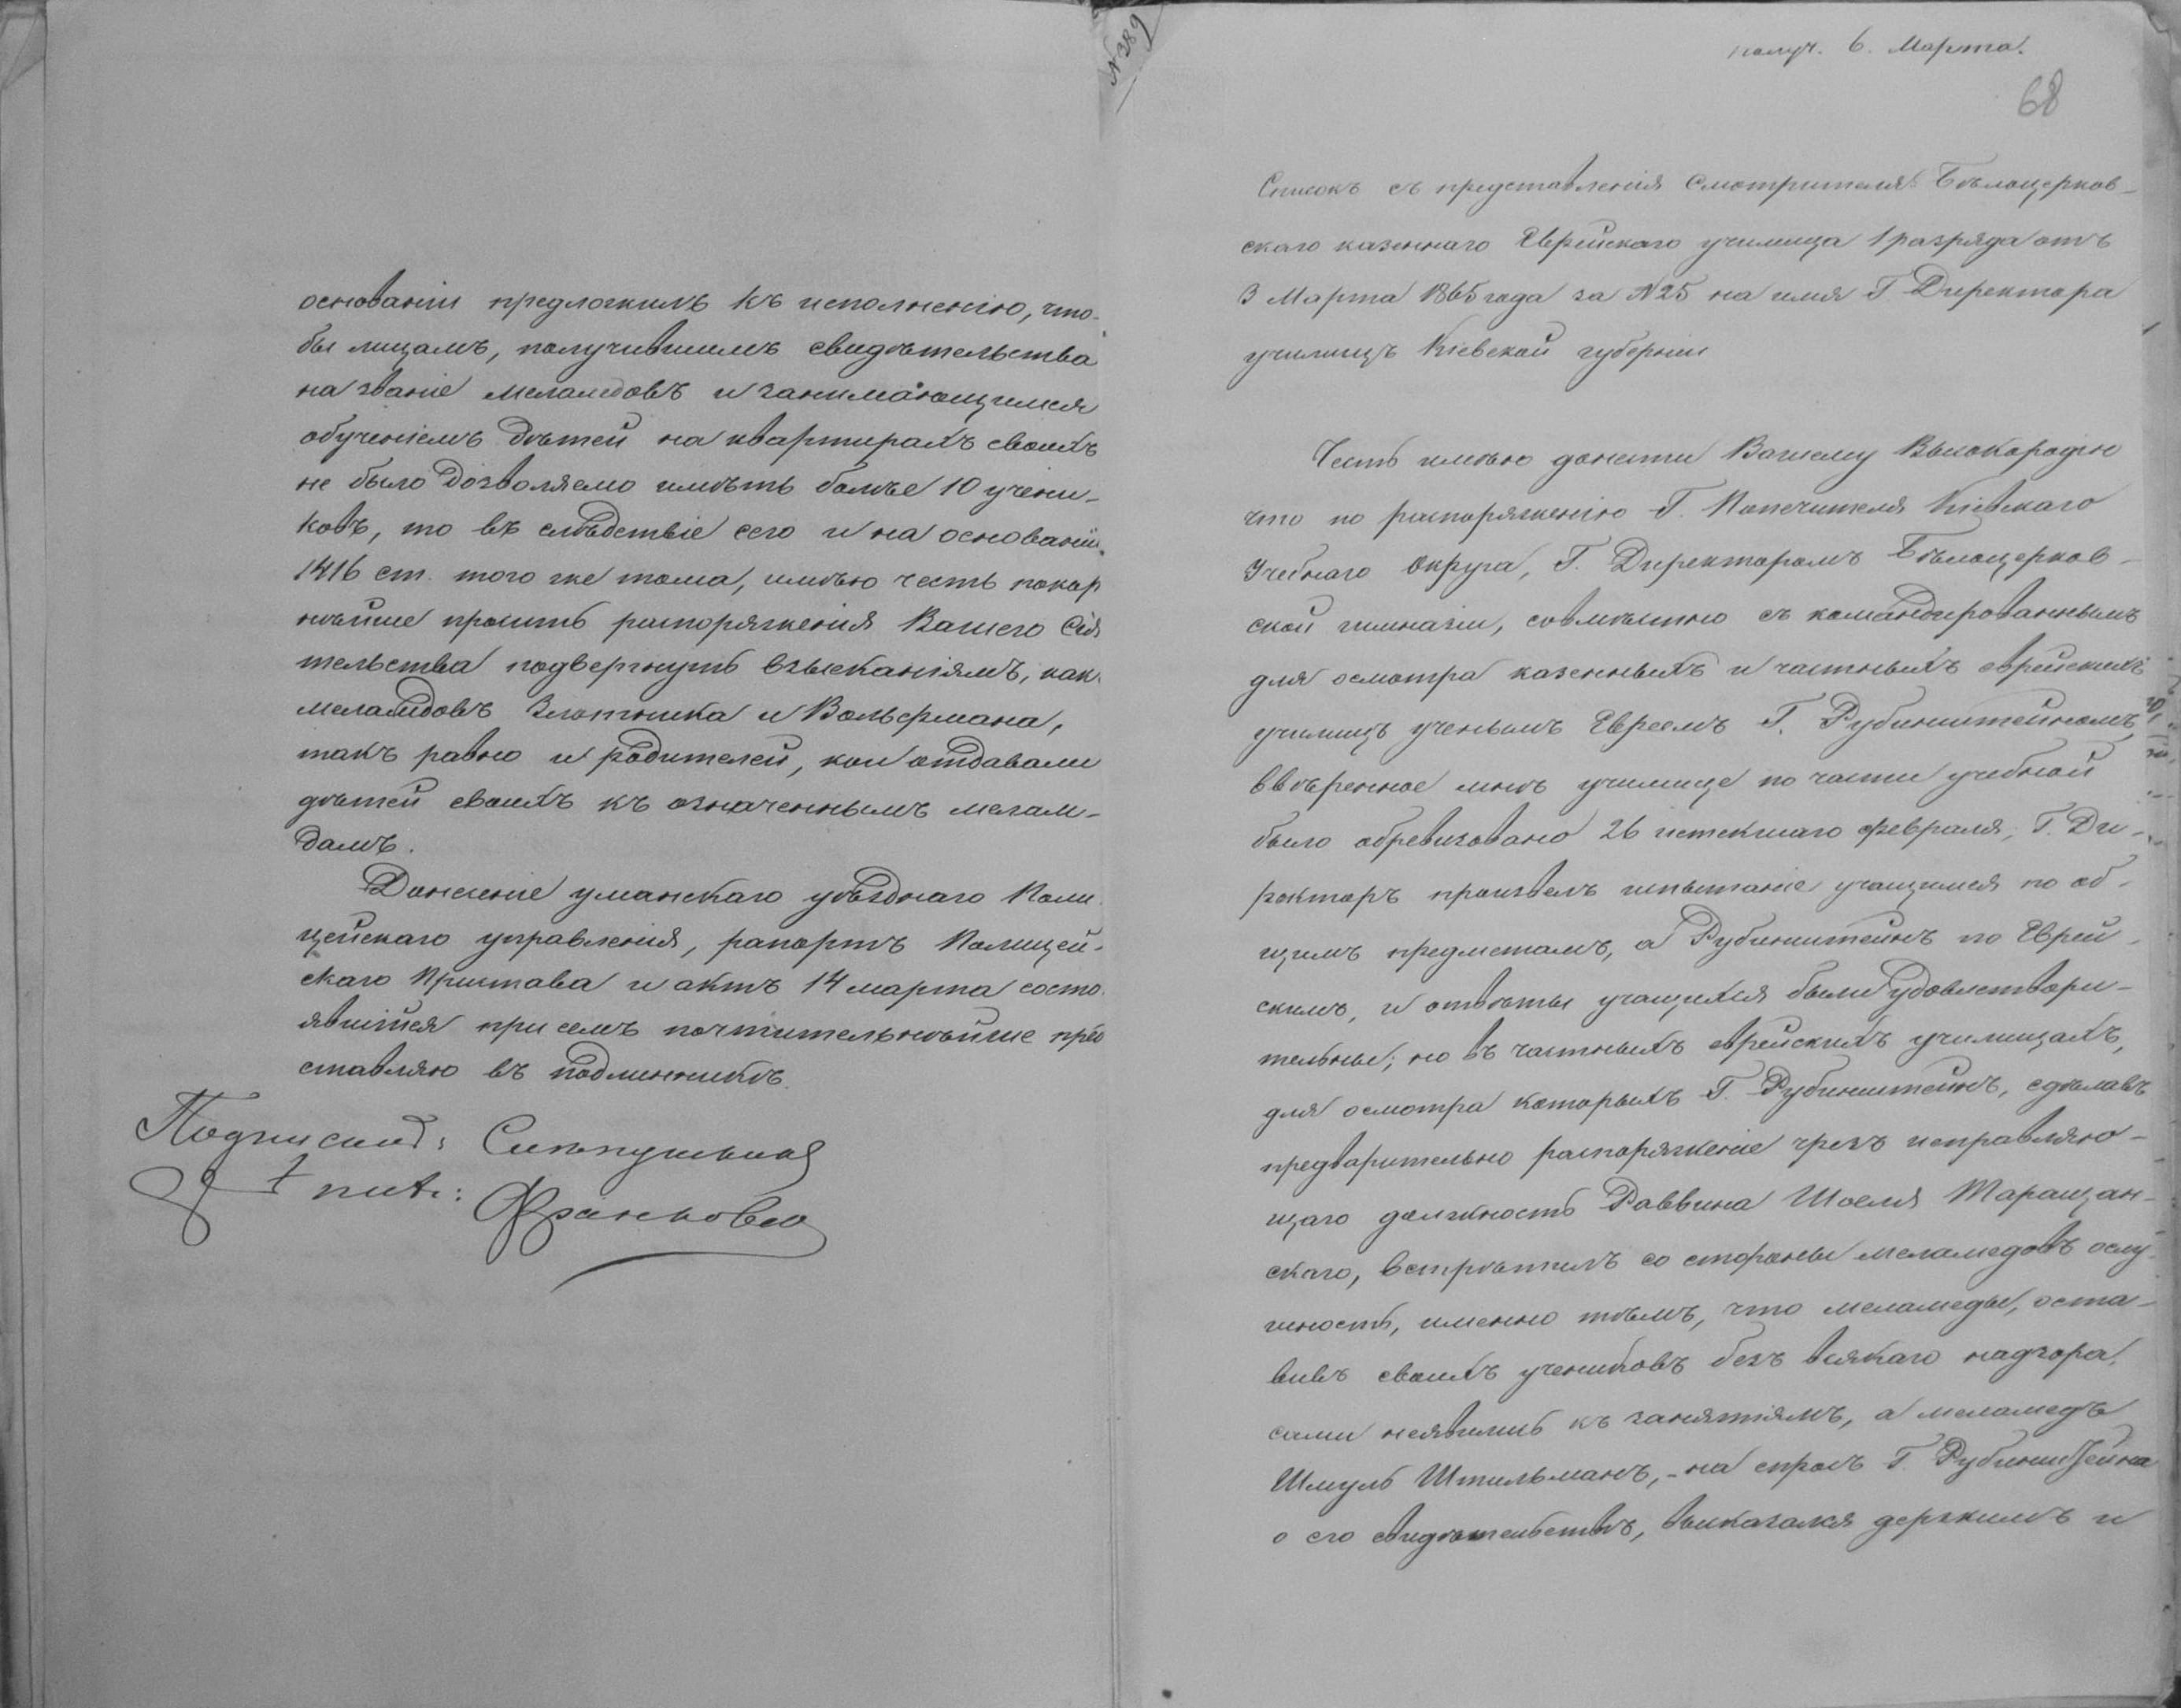 основаніи предложилъ къ исполненію, что-
бы лицамъ, получившимъ свидѣтельства
на званіе меламедовъ и занимающимся
обученіемъ дѣтей на квартирахъ своихъ
не было дозволяемо имѣть болѣе 10 учени-
ковъ, то въ слѣдствіе сего и на основаніи
1416 ст. того же тома, имѣю честь покор
нѣйше просить распоряженія Вашего Сія
тельства подвергнуть взысканіямъ, какъ
меламедовъ Злотника и Вольфмана,
такъ равно и родителей, кои отдавали
дѣтей своихъ къ означеннымъ мелам-
дамъ.
Донесеніе уманскаго уѣзднаго Поли
цейскаго управленія, рапортъ Полицей-
скаго Пристава и актъ 14 марта состо
явшійся при семъ почтительнѣйше пред
ставляю въ подлинникѣ.
Подписалъ:
N 389
получ. 6. Марта.
68
Списокъ съ представленія Смотрителя Бѣлоцерков-
скаго казеннаго Еврейскаго училища 1 разряда отъ
3 Марта 1865 года за N 25 на имя Г Директора
училищъ Кіевской губерніи
Честь имѣю донести Вашему Высокородію
что по распоряженію Г. Попечителя Кіевскаго
Учебнаго Округа, Г. Директоромъ Бѣлоцерков-
ской гимназіи, совмѣстно съ командированнымъ
для осмотра казенныхъ и частныхъ еврейскихъ
училищъ ученымъ Евреемъ Г. Рубинштейномъ,
ввѣренное мнѣ училище по части учебной
было обревизовано 26 истекшаго февраля; Г. Ди-
ректоръ произвелъ испытаніе учащимся по об-
щимъ предметамъ, а Рубинштейнъ по Еврей-
скимъ, и отвѣты учащихся были удовлетвори-
тельные; но въ частныхъ еврейскихъ училищахъ,
для осмотра которыхъ Г. Рубинштейнъ, сдѣлавъ
предварительно распоряженіе чрезъ исправляю-
щаго должность Раввина Шоеля Таращан-
скаго, встрѣтилъ со стороны меламедовъ ослу-
шность, именно тѣмъ, что меламеды, оста-
вивъ своихъ учениковъ безъ всякаго надзора,
сами неявились къ занятіямъ, а меламедъ
Шмуль Штильманъ, - на спросъ Г. Рубинштейна
о его свидѣтельствѣ, выказался дерзкимъ и